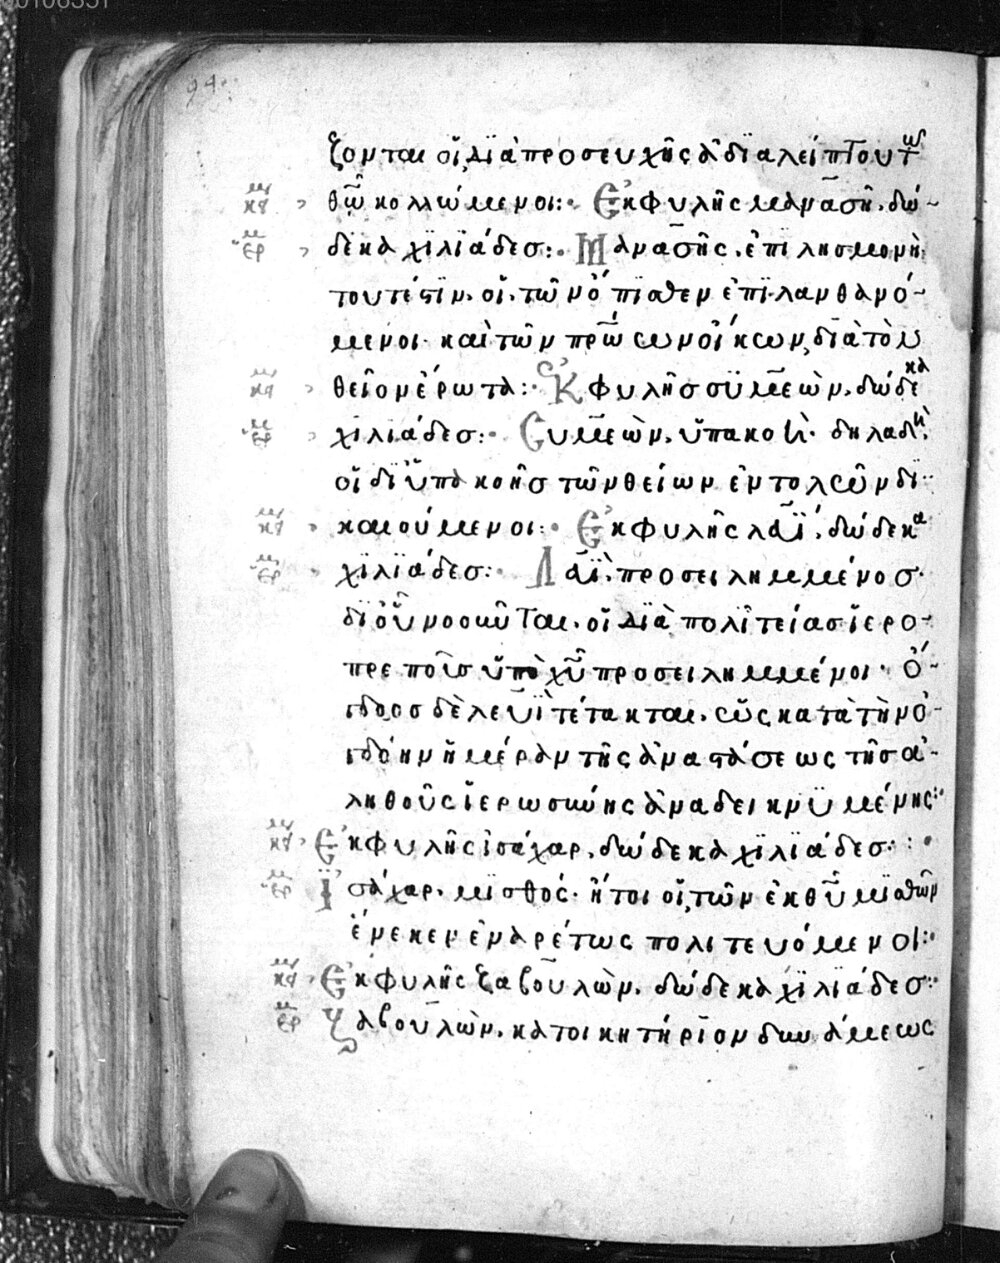 94
ζονται οἱ διὰ προσευχῆς ἀδιαλείπτου τῷ
κει θῶ κολλώμενοι:· Ἐκ φυλῆς μανασῆ, δώ-
ερ δεκα χιλιάδες:· Μανασῆς, ἐπιλησμονὴ
τουτέστιν, οἱ τῶν ὄπισθεν ἐπιλανθανό-
μενοι καὶ τῶν πρώων οἴκων, διὰ τὸν
κει θεῖον ἔρωτα:· Ἐκ φυλῆς συμεὼν, δώδεκα
ερ χιλιάδες:· Συμεὼν, ὑπακοὴ· δηλαδὴ,
οἱ δι ὑπακοῆς τῶν θείων ἐντολῶν δι
κει καιούμενοι:· Ἐκ φυλῆς λευῒ, δώδεκα
ερ χιλιάδες:· Λευῒ, προσειλημμένος·
δι οὗ νοοῦνται, οἱ διὰ πολιτείας ἱερο-
πρεποῦς ὑπὸ χῦ προσειλημμένοι· ὄ-
γδοος δὲ λευῒ τέτακται, ὡς κατὰ τὴν ὀ-
γδόην ἡμέραν τῆς ἀναστάσεως τῆς ἀ-
ληθοῦς ἱερωσύνης ἀναδεικνυμένης:·
κει Ἐκ φυλῆς ἰσάχαρ, δώδεκα χιλιάδες:·
ερ Ἰσάχαρ, μισθός· ἤτοι οἱ τῶν ἐκ θῦ μισθῶν
ἕνεκεν ἐναρέτως πολιτευόμενοι:·
κει Ἐκ φυλῆς ζαβουλὼν, δώδεκα χιλιάδες:·
ερ Ζαβουλὼν, κατοικητήριον δυνάμεως